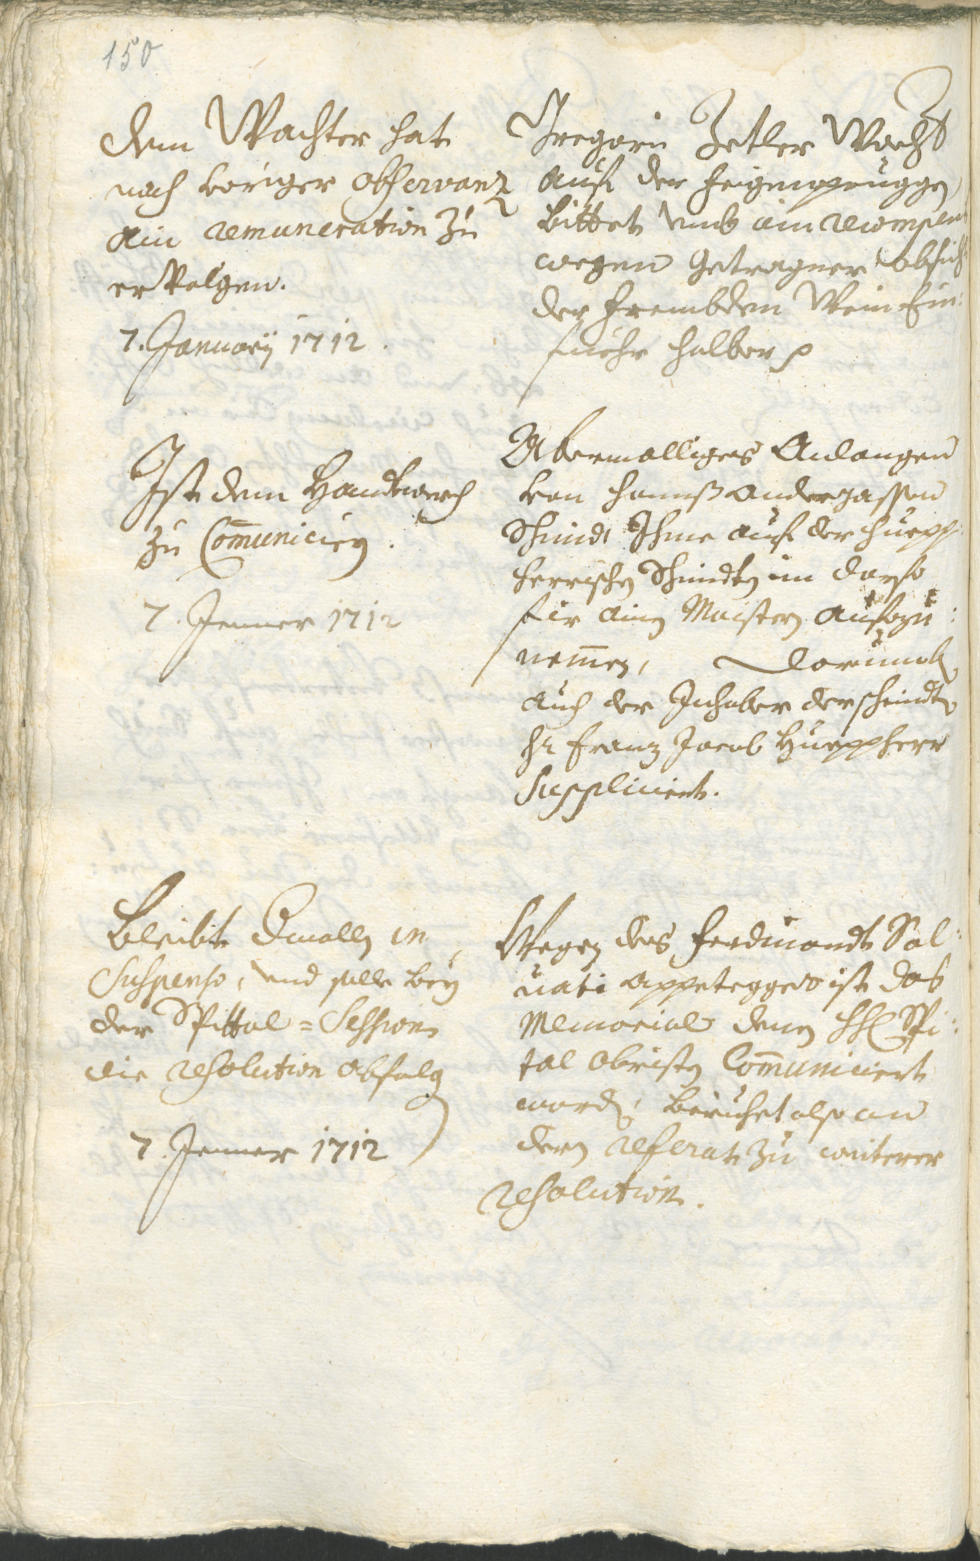 150
Dem Wachter hat
nach voriger observanz
ain remuneration zu
ervolgen.
7. January 1712.
Gregori Zetler Wacht
auf der
Bittet umb ain recompens
wegen getragner obsicht
der frembden Wein Ein:
fuehr halber
Ist dem Handtwerch
zu Com̄uniciern.
7. Jenner 1712
Abermalliges Anlangen
von Hannß Andergassen
Schmidt Ihme auf der Huepp:
herrischen Schmidten im Dorf
fir ainen Maistern aufzu:
nem̄en, Darumben
auch der Inhaber der schmidten
Hr Franz Jacob Hueppherr
Suppliciert.
Bleibt Dermallen in
Suspenso, und solle bey
der Spittal = Session
die resolution erfolgen
7. Jenner 1712
Wegen des Ferdinandt Sal:
vati appeteggers ist das
Memorial denen HH Spi:
tal Obristen Com̄uniciert
worden, beruhet also an
dem referat zu weiterer
resolution.